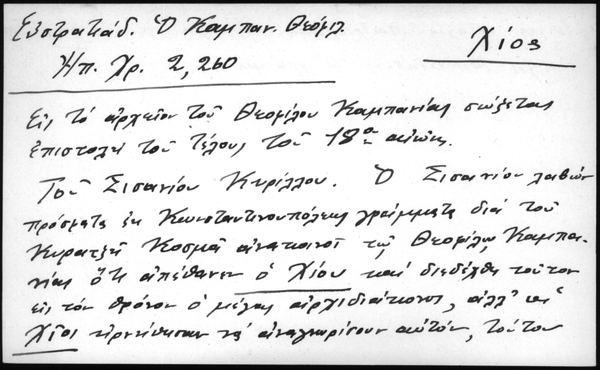 Εὐστρατιάδ. Ὁ Καμπαν. Θεόφιλ.
Χίος
Ἠπ. Χρ. 2, 260
Εἰς τὸ ἀρχεῖον τοῦ Θεοφίλου Καμπανίας σώζεται
ἐπιστολὴ τοῦ τέλους τοῦ 18ου αἰῶνος.
Τοῦ Σισανίου Κυρίλλου. Ὁ Σισανίου λαβὼν
πρόσφατα ἐκ Κωνσταντινουπόλεως γράμματα διὰ τοῦ
Κυρατζῆ Κοσμᾶ ἀνακοινοῖ τῷ Θεοφίλῳ Καμπα-
νίας ὅτι ἀπέθανεν ὁ Χίου καὶ διεδέχθη τοῦτον
εἰς τὸν θρόνον ὁ μέγας ἀρχιδιάκονος, ἀλλ' οἱ
Χῖοι ἠρνήθησαν νὰ ἀναγνωρίσουν αὐτόν, τοῦτον